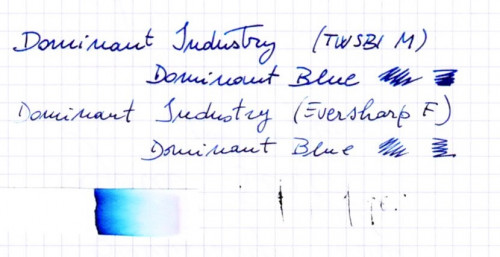 Dominant Industry (TWSBI M)
Dominant Blue
Dominant Industry (Eversharp F)
Dominant Blue